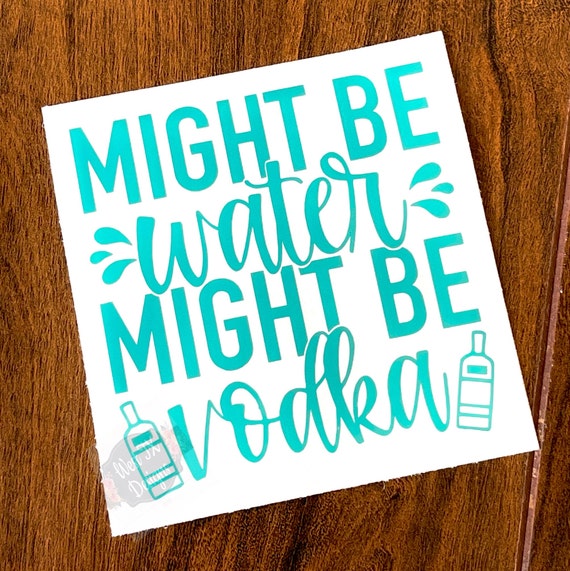 MIGHT BE
water
MIGHT BE
vodka